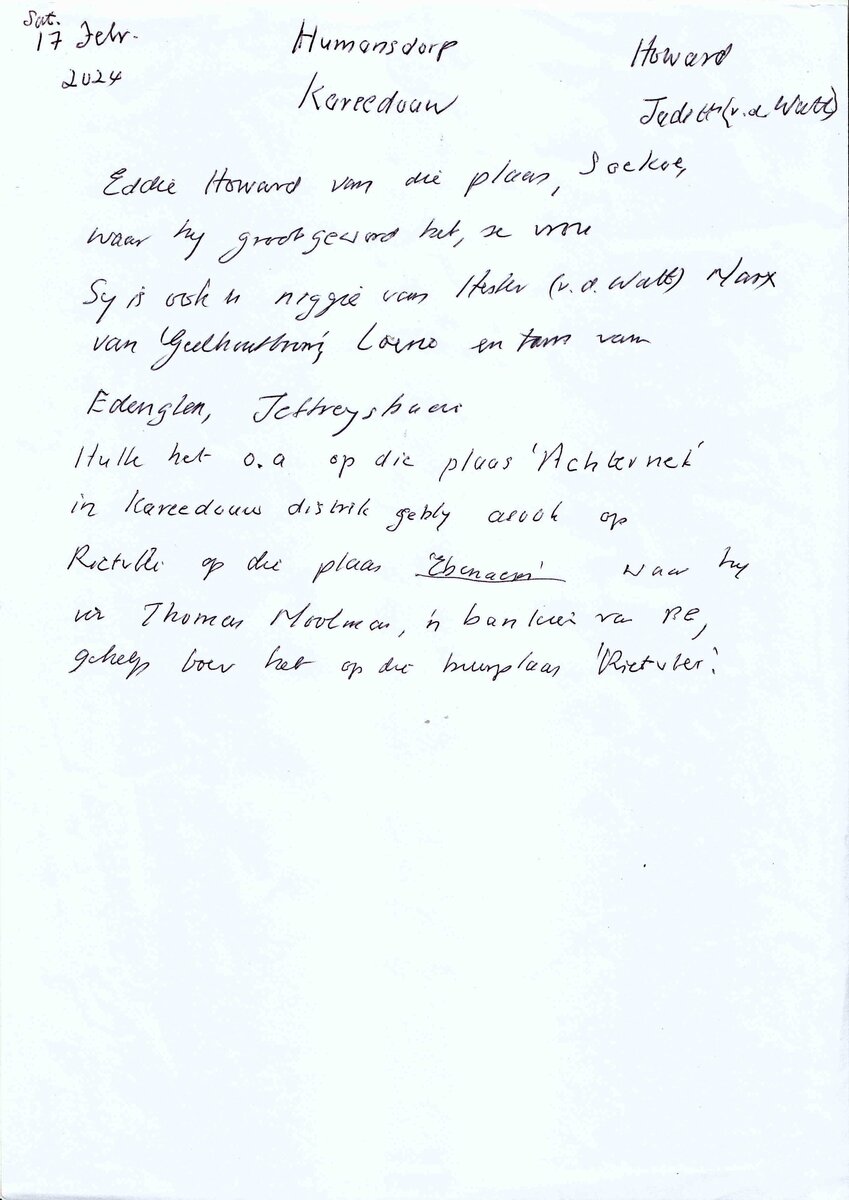 Sat.
17 Febr.
2024
Humansdorp
Kareedouw
Howard
Judith (v.d. Watt)
Eddie Howard van die plaas, Seekoe,
waar hy grootgeword het, se vrou
Sy is ook 'n niggie van Hester (v.d. Watt) Marx
van Geelhoutboom, Loerie en van
Edenglen, Jeffreysbaai
Hulle het o.a op die plaas 'Achternek'
in Kareedouw distrik gebly asook op
Rietvlei op die plaas waar hy
vir Thomas Moolman, 'n bankier van PE,
gehelp boer het op die buurplaas 'Rietvlei'.